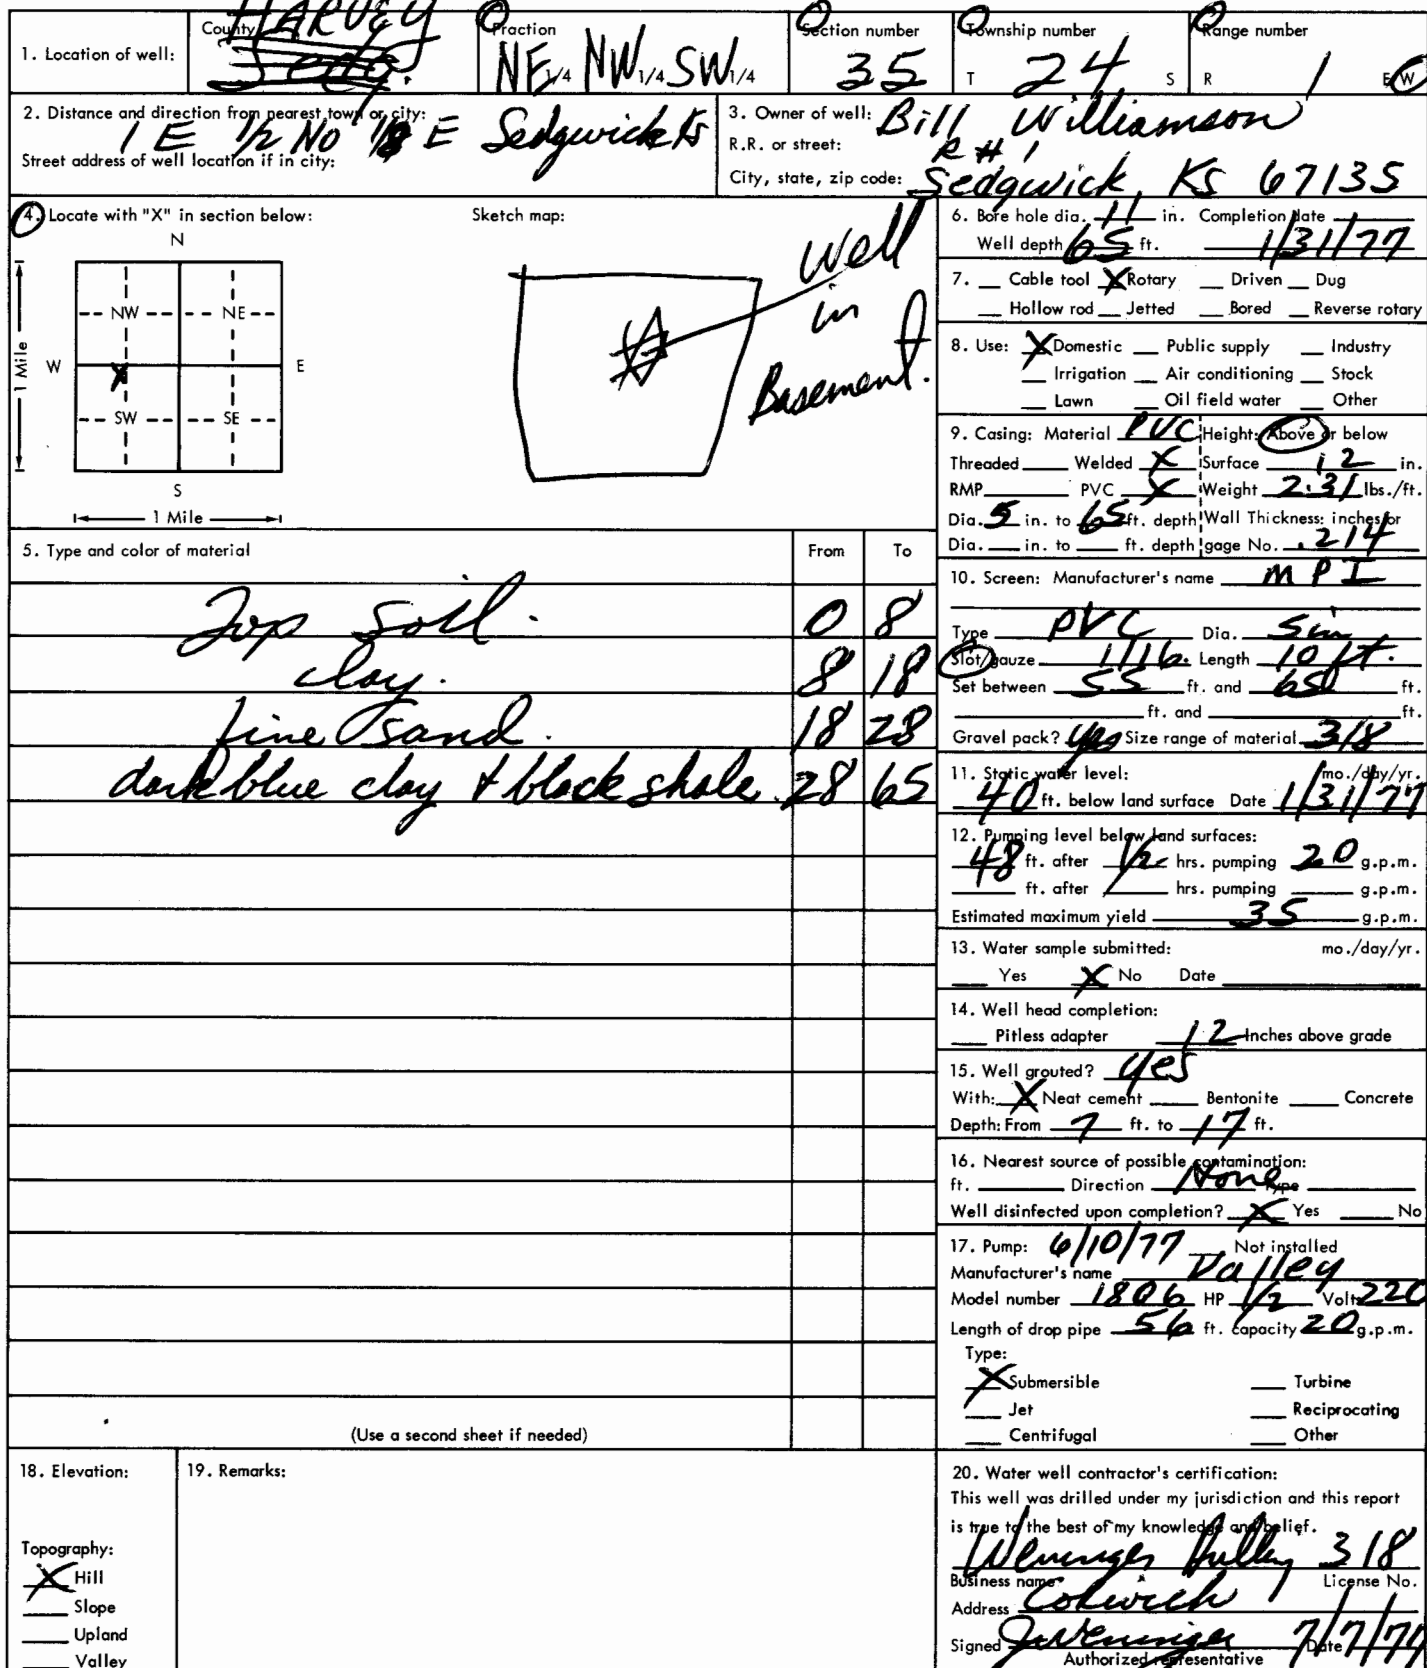 1. Location of well: County HARVEY Fraction NE 1/4 NW 1/4 SW 1/4 Section number 35 Township number T 24 S Range number R 1 E W
2. Distance and direction from nearest town or city: 1 E 1/2 No E Sedgwick Ks
Street address of well location if in city:
3. Owner of well: Bill Williamson
R.R. or street: R # 1
City, state, zip code: Sedgwick, Ks 67135
4. Locate with "X" in section below: Sketch map:
N
NW NE
W E
X
SW SE
S
1 Mile
1 Mile
well
in
Basement.
5. Type and color of material From To
Top soil. 0 8
clay. 8 18
fine sand. 18 28
dark blue clay + black shale 28 65
(Use a second sheet if needed)
6. Bore hole dia. 11 in. Completion date
Well depth 65 ft. 1/31/77
7. Cable tool X Rotary Driven Dug
Hollow rod Jetted Bored Reverse rotary
8. Use: X Domestic Public supply Industry
Irrigation Air conditioning Stock
Lawn Oil field water Other
9. Casing: Material PVC Height: Above or below
Threaded Welded X Surface 12 in.
RMP PVC X Weight 2.31 lbs./ft.
Dia. 5 in. to 65 ft. depth Wall Thickness: inches or
Dia. in. to ft. depth gage No. .214
10. Screen: Manufacturer's name MPI
Type PVC Dia. 5in
Slot/gauze 1/16. Length 10 ft.
Set between 55 ft. and 65 ft.
ft. and ft.
Gravel pack? yes Size range of material 3/8
11. Static water level: mo./day/yr.
40 ft. below land surface Date 1/31/77
12. Pumping level below land surfaces:
48 ft. after 1/2 hrs. pumping 20 g.p.m.
ft. after hrs. pumping g.p.m.
Estimated maximum yield 35 g.p.m.
13. Water sample submitted: mo./day/yr.
Yes X No Date
14. Well head completion:
Pitless adapter 12 Inches above grade
15. Well grouted? yes
With: X Neat cement Bentonite Concrete
Depth: From 7 ft. to 17 ft.
16. Nearest source of possible contamination:
ft. Direction None Type
Well disinfected upon completion? X Yes No
17. Pump: 6/10/77 Not installed
Manufacturer's name Valley
Model number 1806 HP 1/2 Volts 220
Length of drop pipe 56 ft. capacity 20 g.p.m.
Type:
X Submersible Turbine
Jet Reciprocating
Centrifugal Other
18. Elevation:
Topography:
X Hill
Slope
Upland
Valley
19. Remarks:
20. Water well contractor's certification:
This well was drilled under my jurisdiction and this report
is true to the best of my knowledge and belief.
Weninger 318
Business name License No.
Address Colwich
Signed J Weninger Date 7/7/77
Authorized representative